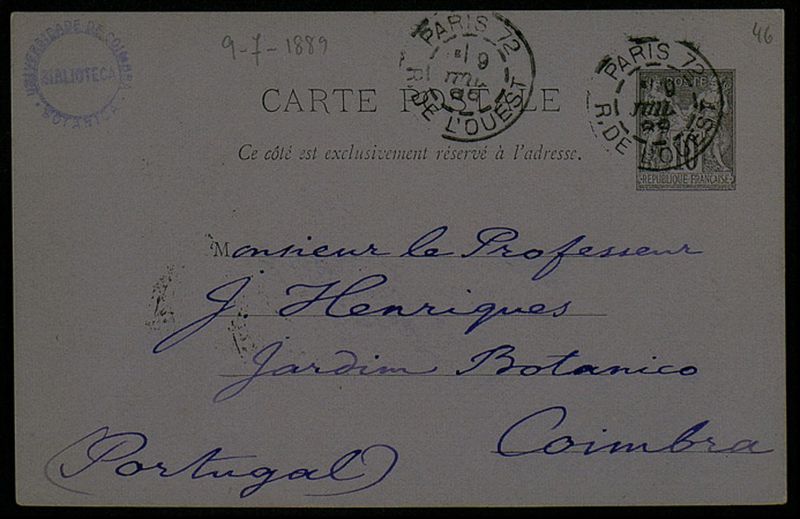 UNIVERSIDADE DE COIMBRA
BIBLIOTECA
BOTANICA
9-7-1889
46
PARIS 72
9
JUIL
89
R. DE L'OUEST
PARIS 72
9
JUIL
89
R. DE L'OUEST
CARTE POSTALE
Ce côté est exclusivement réservé à l'adresse.
10
RÉPUBLIQUE FRANÇAISE
Monsieur le Professeur
J. Henriques
Jardim Botanico
Coimbra
(Portugal)